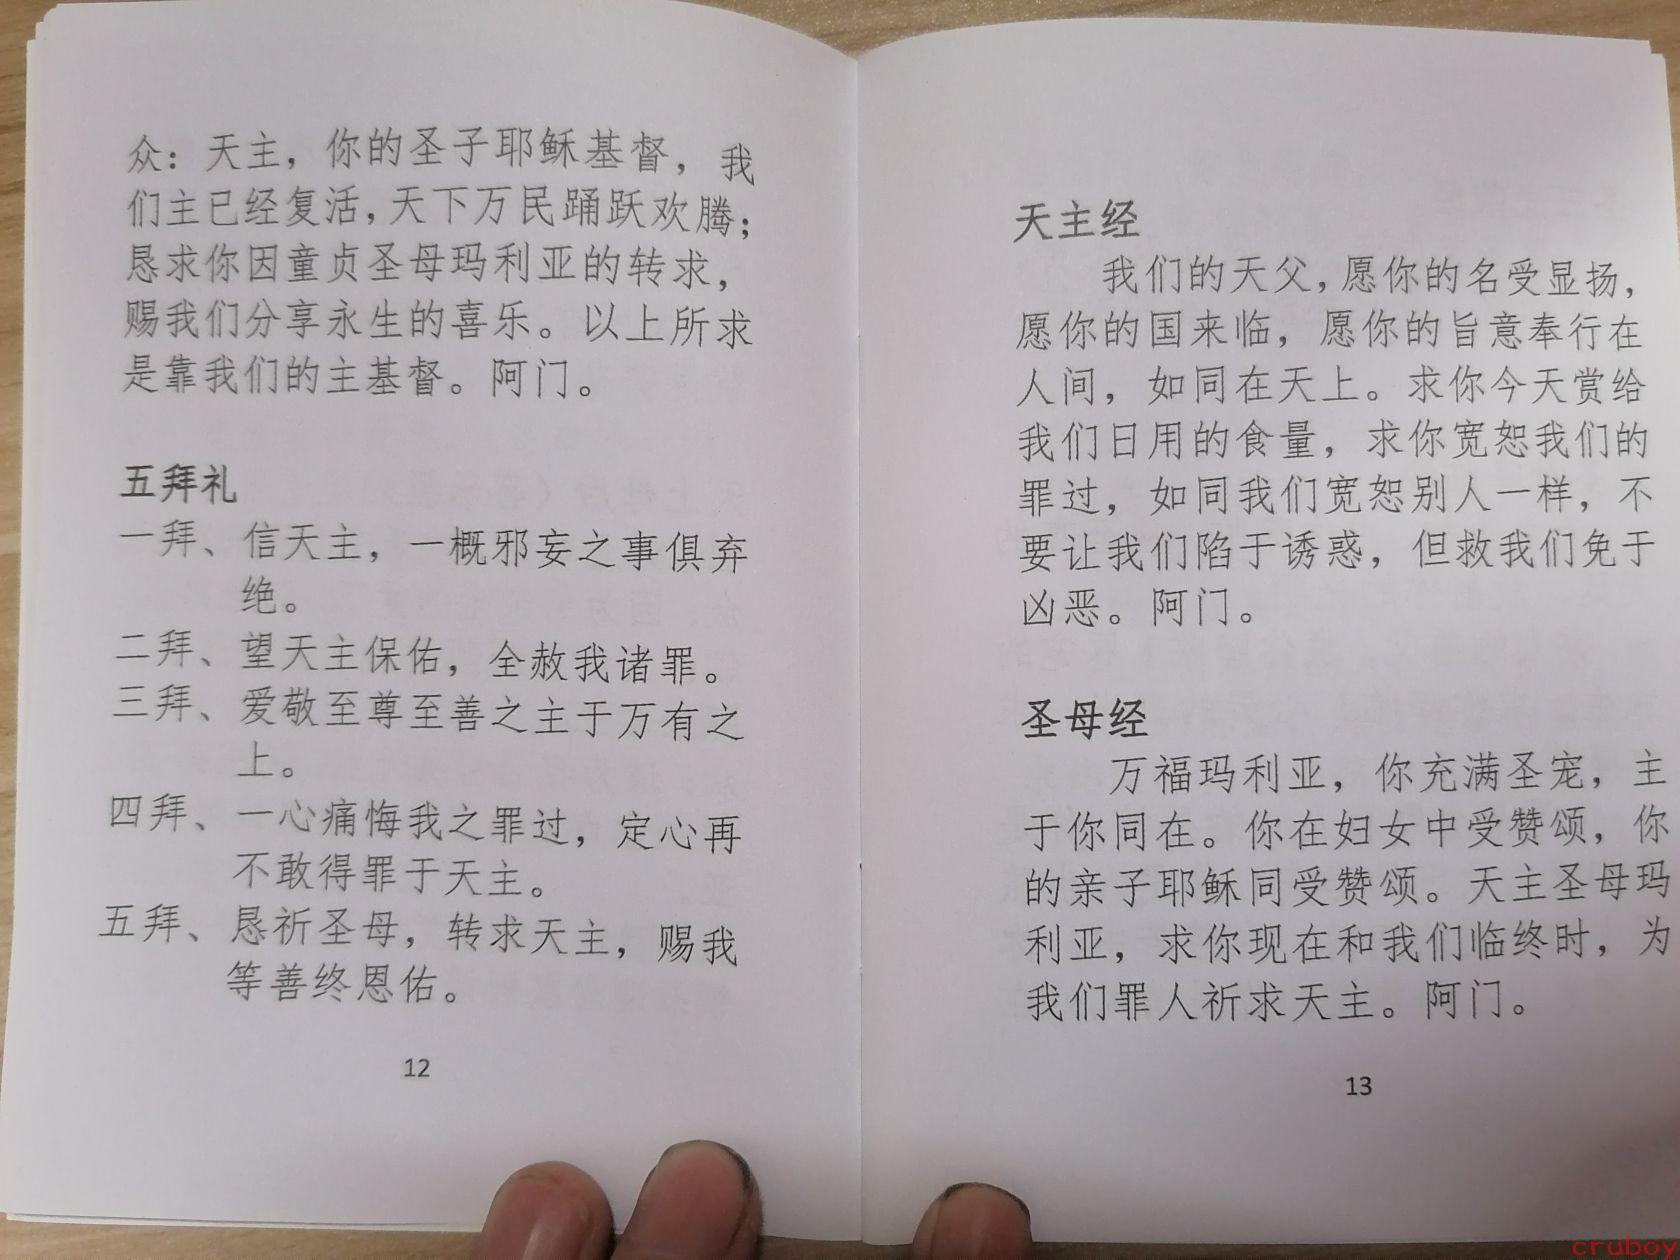 众：天主，你的圣子耶稣基督，我
们主已经复活，天下万民踊跃欢腾；
恳求你因童贞圣母玛利亚的转求，
赐我们分享永生的喜乐。以上所求
是靠我们的主基督。阿门。
五拜礼
一拜、信天主，一概邪妄之事俱弃
绝。
二拜、望天主保佑，全赦我诸罪。
三拜、爱敬至尊至善之主于万有之
上。
四拜、一心痛悔我之罪过，定心再
不敢得罪于天主。
五拜、恳祈圣母，转求天主，赐我
等善终恩佑。
12
天主经
我们的天父，愿你的名受显扬，
愿你的国来临，愿你的旨意奉行在
人间，如同在天上。求你今天赏给
我们日用的食量，求你宽恕我们的
罪过，如同我们宽恕别人一样，不
要让我们陷于诱惑，但救我们免于
凶恶。阿门。
圣母经
万福玛利亚，你充满圣宠，主
于你同在。你在妇女中受赞颂，你
的亲子耶稣同受赞颂。天主圣母玛
利亚，求你现在和我们临终时，为
我们罪人祈求天主。阿门。
13
cruboy